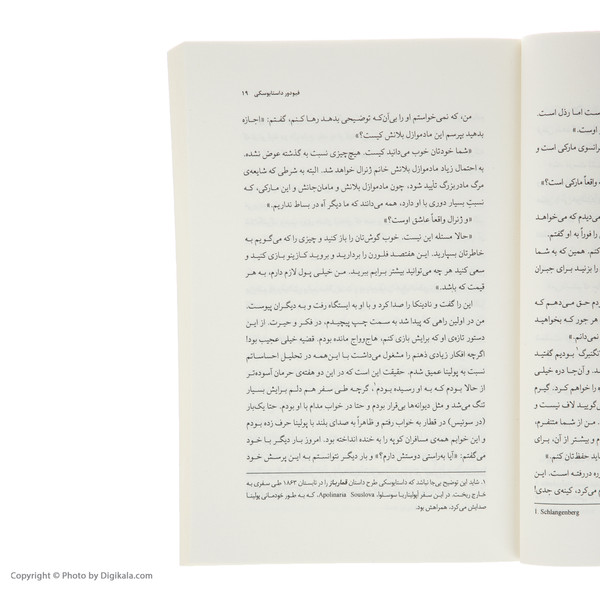 فیودور داستایوسکی ۱۹
من، که نمی‌خواستم او را بی‌آن‌که توضیحی بدهد رها کنم، گفتم: «اجازه
بدهید بپرسم این مادموازل بلانش کیست؟»
«شما خودتان خوب می‌دانید کیست. هیچ‌چیزی نسبت به گذشته عوض نشده.
به احتمال زیاد مادموازل بلانش خانم ژنرال خواهد شد. البته به شرطی که شایعه‌ی
مرگ مادربزرگ تأیید شود، چون مادموازل بلانش و مامان‌جانش و این مارکی، که
نسبت بسیار دوری با او دارد، همه می‌دانند که ما دیگر آه در بساط نداریم.»
«و ژنرال واقعاً عاشق اوست؟»
«حالا مسئله این نیست. خوب گوش‌تان را باز کنید و چیزی را که می‌گویم به
خاطرتان بسپارید. این هفتصد فلورن را بردارید و بروید کازینو بازی کنید و
سعی کنید هر چه می‌توانید بیشتر برایم ببرید. من خیلی پول لازم دارم، به هر
قیمت که باشد.»
این را گفت و نادینکا را صدا کرد و با او به ایستگاه رفت و به دیگران پیوست.
من در اولین راهی که پیدا شد به سمت چپ پیچیدم، در فکر و حیرت. از این
دستور تازه‌ی او که برایش بازی کنم، هاج‌وواج مانده بودم. قضیه خیلی عجیب بود!
اگرچه افکار زیادی ذهنم را مشغول می‌داشت با این‌همه در تحلیل احساساتم
نسبت به پولینا عمیق شدم. حقیقت این است که در این دو هفته‌ی حرمان آسوده‌تر
از حالا بودم که به او رسیده بودم۱، گرچه طی سفر هم دلم برایش بسیار
تنگ می‌شد و مثل دیوانه‌ها بی‌قرار بودم و حتا در خواب مدام با او بودم. حتا یک‌بار
(در سوئیس) در قطار به خواب رفتم و ظاهراً به صدای بلند با پولینا حرف زده بودم
و این خوابم همه‌ی مسافران کوپه را به خنده انداخته بود. امروز بار دیگر با خود
می‌گفتم: «آیا به‌راستی دوستش دارم؟» و بار دیگر نتوانستم به این پرسش خود
۱. شاید این توضیح بی‌جا نباشد که داستایوسکی طرح داستان قمارباز را در تابستان ۱۸۶۳ طی سفری به
خارج ریخت. در این سفر آپولیناریا سوسلوا، Apolinaria Souslova، که به طور خودمانی پولینا
صدایش می‌کرد، همراهش بود.
ست اما رذل است.
و اوست.»
رانسوی مارکی است و
واقعاً مارکی است؟»
می‌دیدم که می‌خواهد
را فوراً به او گفتم.
کنم. همین که به شما
را بزنید برای جبران
ردم حق می‌دهم که
هر جور که بخواهید
نمی‌دانم.»
نگنبرگ۱ بودیم گفتید
د. و آن‌جا دره خیلی
را خواهم کرد. گیرم
ی‌گویید لاف نیست و
. من از شما متنفرم،
م و بیشتر از آن، برای
اید حفظ‌تان کنم.»
وره دررفته است. این
م می‌کرد، کینه‌ی جدی!
1. Schlangenberg
Copyright © Photo by Digikala.com